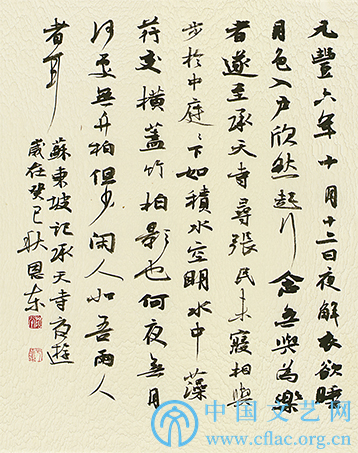 元豐六年十月十二日夜解衣欲睡
月色入戶欣然起行念無與為樂
者遂至承天寺尋張民未寢相與
步於中庭〻下如積水空明水中藻
荇交橫蓋竹柏影也何夜無月
何處無竹柏但少閑人如吾兩人
者耳
蘇東坡記承天寺夜遊
歲在癸巳耿恩东
中国文艺网
www.cflac.org.cn